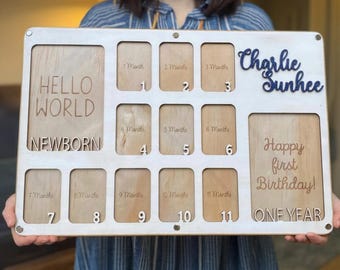 HELLO
WORLD
NEWBORN
1 Months
1
2 Months
2
3 Months
3
Charlie
Sunhee
4 Months
4
5 Months
5
6 Months
6
7 Months
7
8 Months
8
9 Months
9
10 Months
10
11 Months
11
Happy
first
Birthday!
ONE YEAR